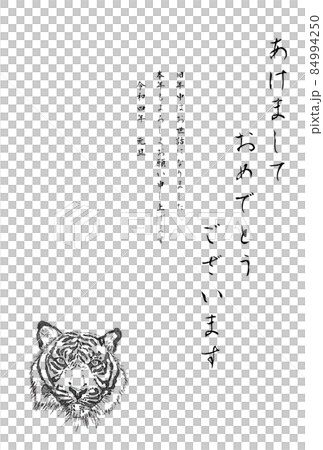 あけまして
おめでとう
ございます
旧年中はお世話になりました
本年もよろしくお願い申し上げます
令和四年 元旦
PIXTA
pixta.jp - 84994250